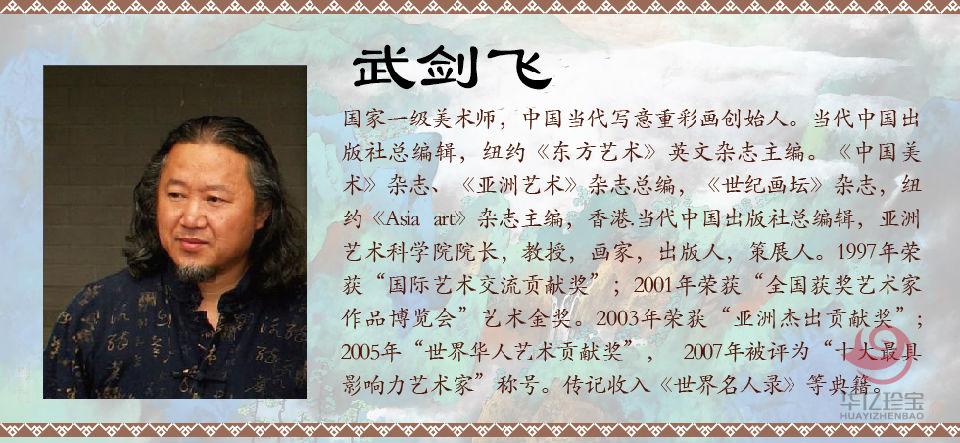 武剑飞
国家一级美术师，中国当代写意重彩画创始人。当代中国出
版社总编辑，纽约《东方艺术》英文杂志主编。《中国美
术》杂志、《亚洲艺术》杂志总编，《世纪画坛》杂志，纽
约《Asia art》杂志主编，香港.当代中国出版社总编辑，亚洲
艺术科学院院长，教授，画家，出版人，策展人。1997年荣
获“国际艺术交流贡献奖”；2001年荣获“全国获奖艺术家
作品博览会”艺术金奖。2003年荣获“亚洲杰出贡献奖”；
2005年“世界华人艺术贡献奖”， 2007年被评为“十大最具
影响力艺术家”称号。传记收入《世界名人录》等典籍。
华亿珍宝
HUAYIZHENBAO